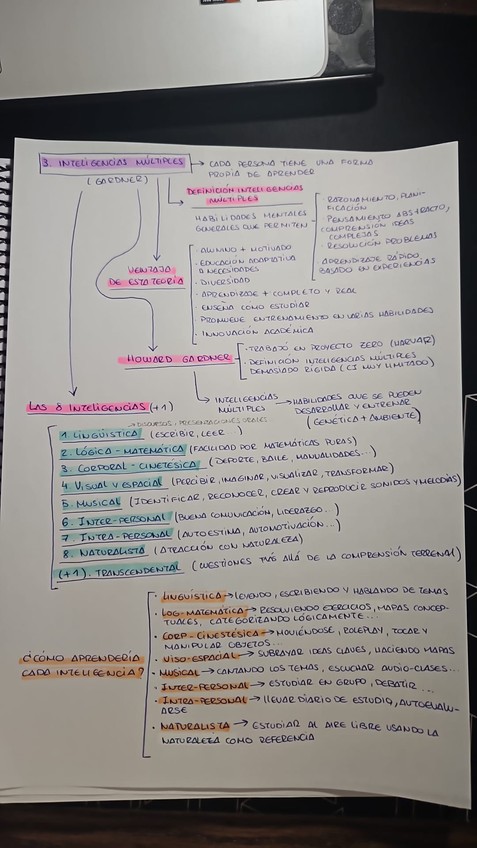 3. INTELIGENCIAS MÚLTIPLES → CADA PERSONA TIENE UNA FORMA
PROPIA DE APRENDER
(GARDNER)
DEFINICIÓN INTELIGENCIAS
MÚLTIPLES
HABILIDADES MENTALES
GENERALES QUE PERMITEN
- RAZONAMIENTO, PLANI-
FICACIÓN
- PENSAMIENTO ABSTRACTO,
COMPRENSION IDEAS
COMPLEJAS
- RESOLUCIÓN PROBLEMAS
APRENDIZAJE RÁPIDO
BASADO EN EXPERIENCIAS
VENTAJA
DE ESTA TEORÍA
· ALUMNO + MOTIVADO
· EDUCACIÓN ADAPTATIVA
A NECESIDADES
· DIVERSIDAD
· APRENDIZAJE + COMPLETO Y REAL
ENSEÑA COMO ESTUDIAR
PROMUEVE ENTRENAMIENTO EN VARIAS HABILIDADES
· INNOVACIÓN ACADÉMICA
HOWARD GARDNER
- TRABAJÓ EN PROYECTO ZERO (HARVAR)
- DEFINICIÓN INTELIGENCIAS MÚLTIPLES
DEMASIADO RÍGIDA (CI MUY LIMITADO)
→ INTELIGENCIAS
MÚLTIPLES → HABILIDADES QUE SE PUEDEN
DESARROLLAR Y ENTRENAR
(GENÉTICA + AMBIENTE)
LAS 8 INTELIGENCIAS (+1)
→ DISCURSOS, PRESENTACIONES ORALES
1 LINGÜÍSTICA (ESCRIBIR, LEER)
2. LÓGICA - MATEMÁTICA (FACILIDAD POR MATEMÁTICAS PURAS)
3. CORPORAL - CINETÉSICA (DEPORTE, BAILE, MANUALIDADES...)
4 VISUAL Y ESPACIAL (PERCIBIR, IMAGINAR, VISUALIZAR, TRANSFORMAR)
5. MUSICAL (IDENTIFICAR, RECONOCER, CREAR Y REPRODUCIR SONIDOS Y MELODÍAS)
6. INTER-PERSONAL (BUENA COMUNICACIÓN, LIDERAZGO...)
7. INTRA-PERSONAL (AUTOESTIMA, AUTOMOTIVACIÓN...)
8. NATURALISTA (ATRACCIÓN CON NATURALEZA)
(+1). TRANSCENDENTAL (CUESTIONES MÁS ALLÁ DE LA COMPRENSIÓN TERRENAL)
¿CÓMO APRENDERÍA
CADA INTELIGENCIA?
· LINGÜÍSTICA → LEYENDO, ESCRIBIENDO Y HABLANDO DE TEMAS
· LOG-MATEMÁTICA → RESOLVIENDO EJERCICIOS, MAPAS CONCEP-
TUALES, CATEGORIZANDO LÓGICAMENTE...
· CORP - CINESTÉSICA → MOVIÉNDOSE, ROLEPLAY, TOCAR Y
MANIPULAR OBJETOS...
· VISO-ESPACIAL → SUBRAYAR IDEAS CLAVES, HACIENDO MAPAS
· MUSICAL → CANTANDO LOS TEMAS, ESCUCHAR AUDIO-CLASES...
· INTER-PERSONAL → ESTUDIAR EN GRUPO, DEBATIR...
· INTRA-PERSONAL → LLEVAR DIARIO DE ESTUDIO, AUTOEVALU-
ARSE
· NATURALISTA → ESTUDIAR AL AIRE LIBRE USANDO LA
NATURALEZA COMO REFERENCIA